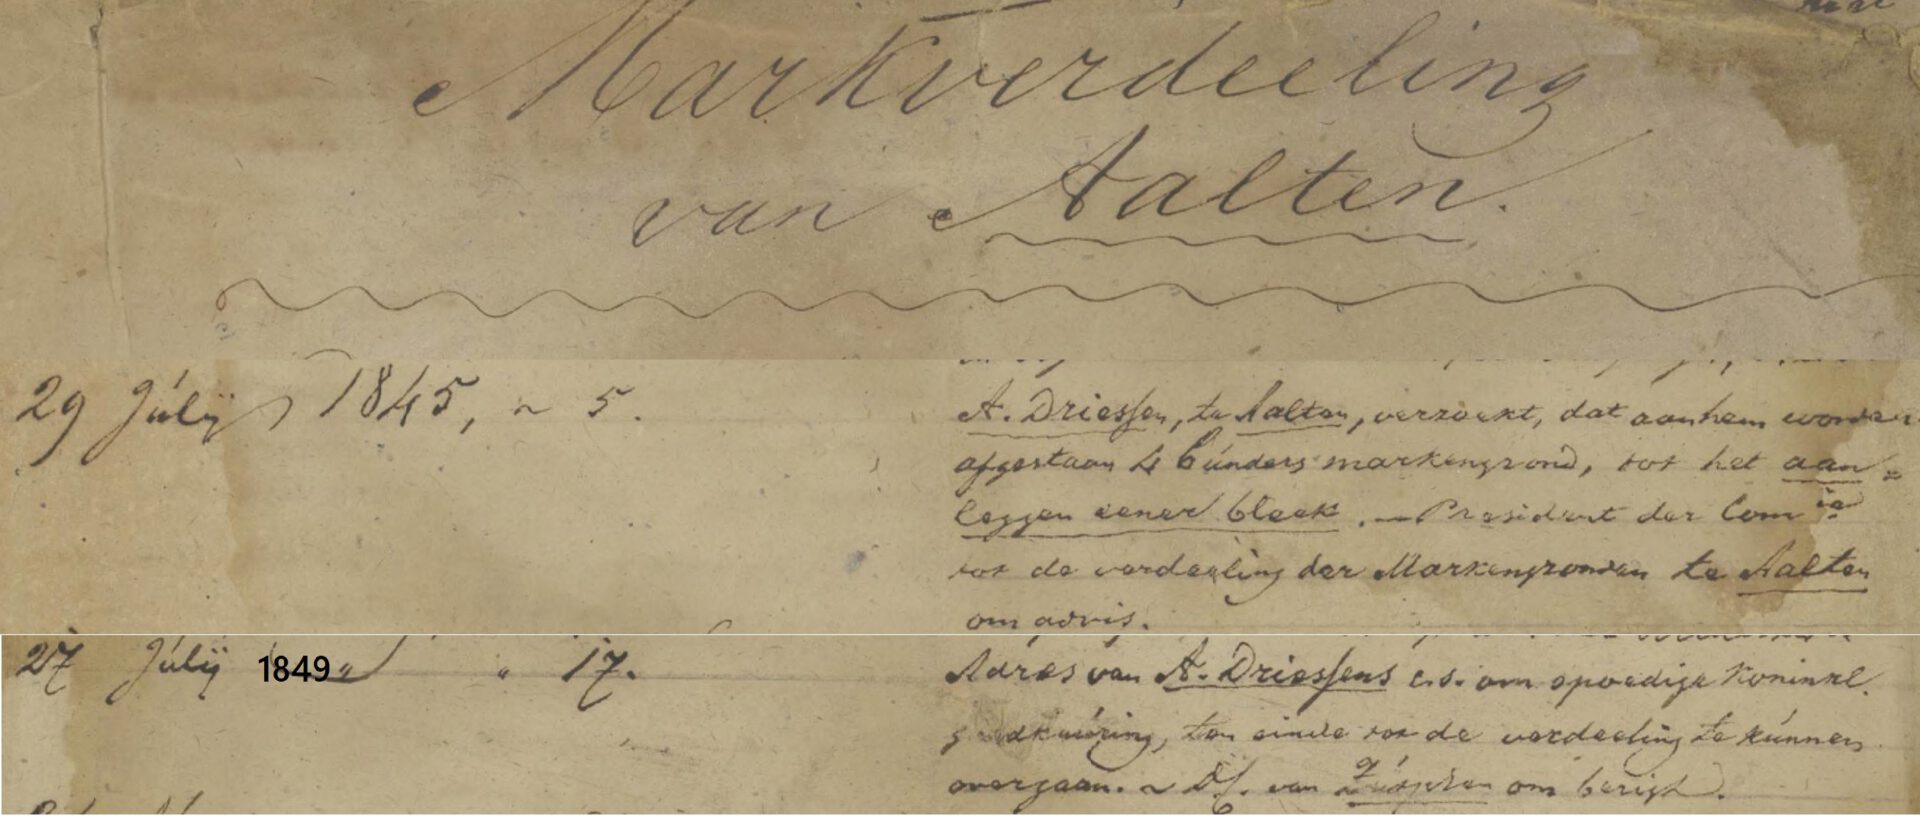 Markverdeeling
van Aalten.
29 Julij 1845, ~ 5.
A. Driessen, te Aalten, verzoekt, dat aan hem worden
afgestaan 4 bunders markengrond, tot het aan=
leggen eener bleek. — President der Com ie
tot de verdeeling der Markengronden te Aalten
om advis.
27 Julij 1849 „ „ 17.
Adres van A. Driessens c.s. om spoedige Koninkl.
goedkeuring, ten einde tot de verdeeling te kunnen
overgaan. ~ D/. van Zutphen om berigt.